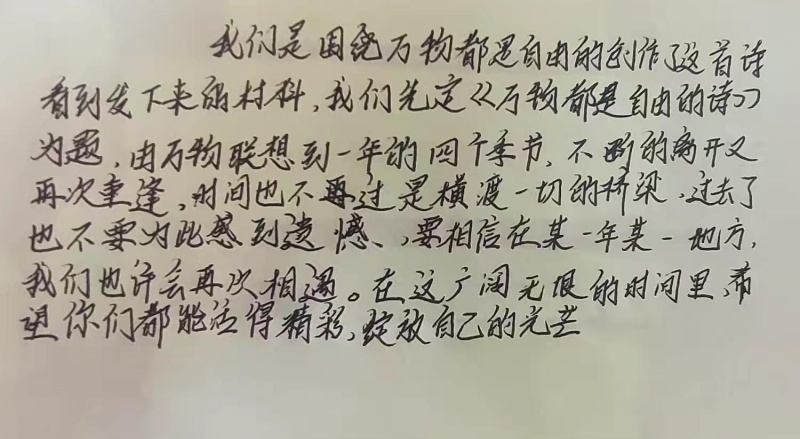 我们是围绕万物都是自由的创作了这首诗
看到发下来的材料,我们先定《万物都是自由的诗》
为题,由万物联想到一年的四个季节,不断的离开又
再次重逢,时间也不再过是横渡一切的桥梁,过去了
也不要为此感到遗憾、,要相信在某一年某一地方,
我们也许会再次相遇。在这广阔无垠的时间里,希
望你们都能活得精彩,绽放自己的光芒